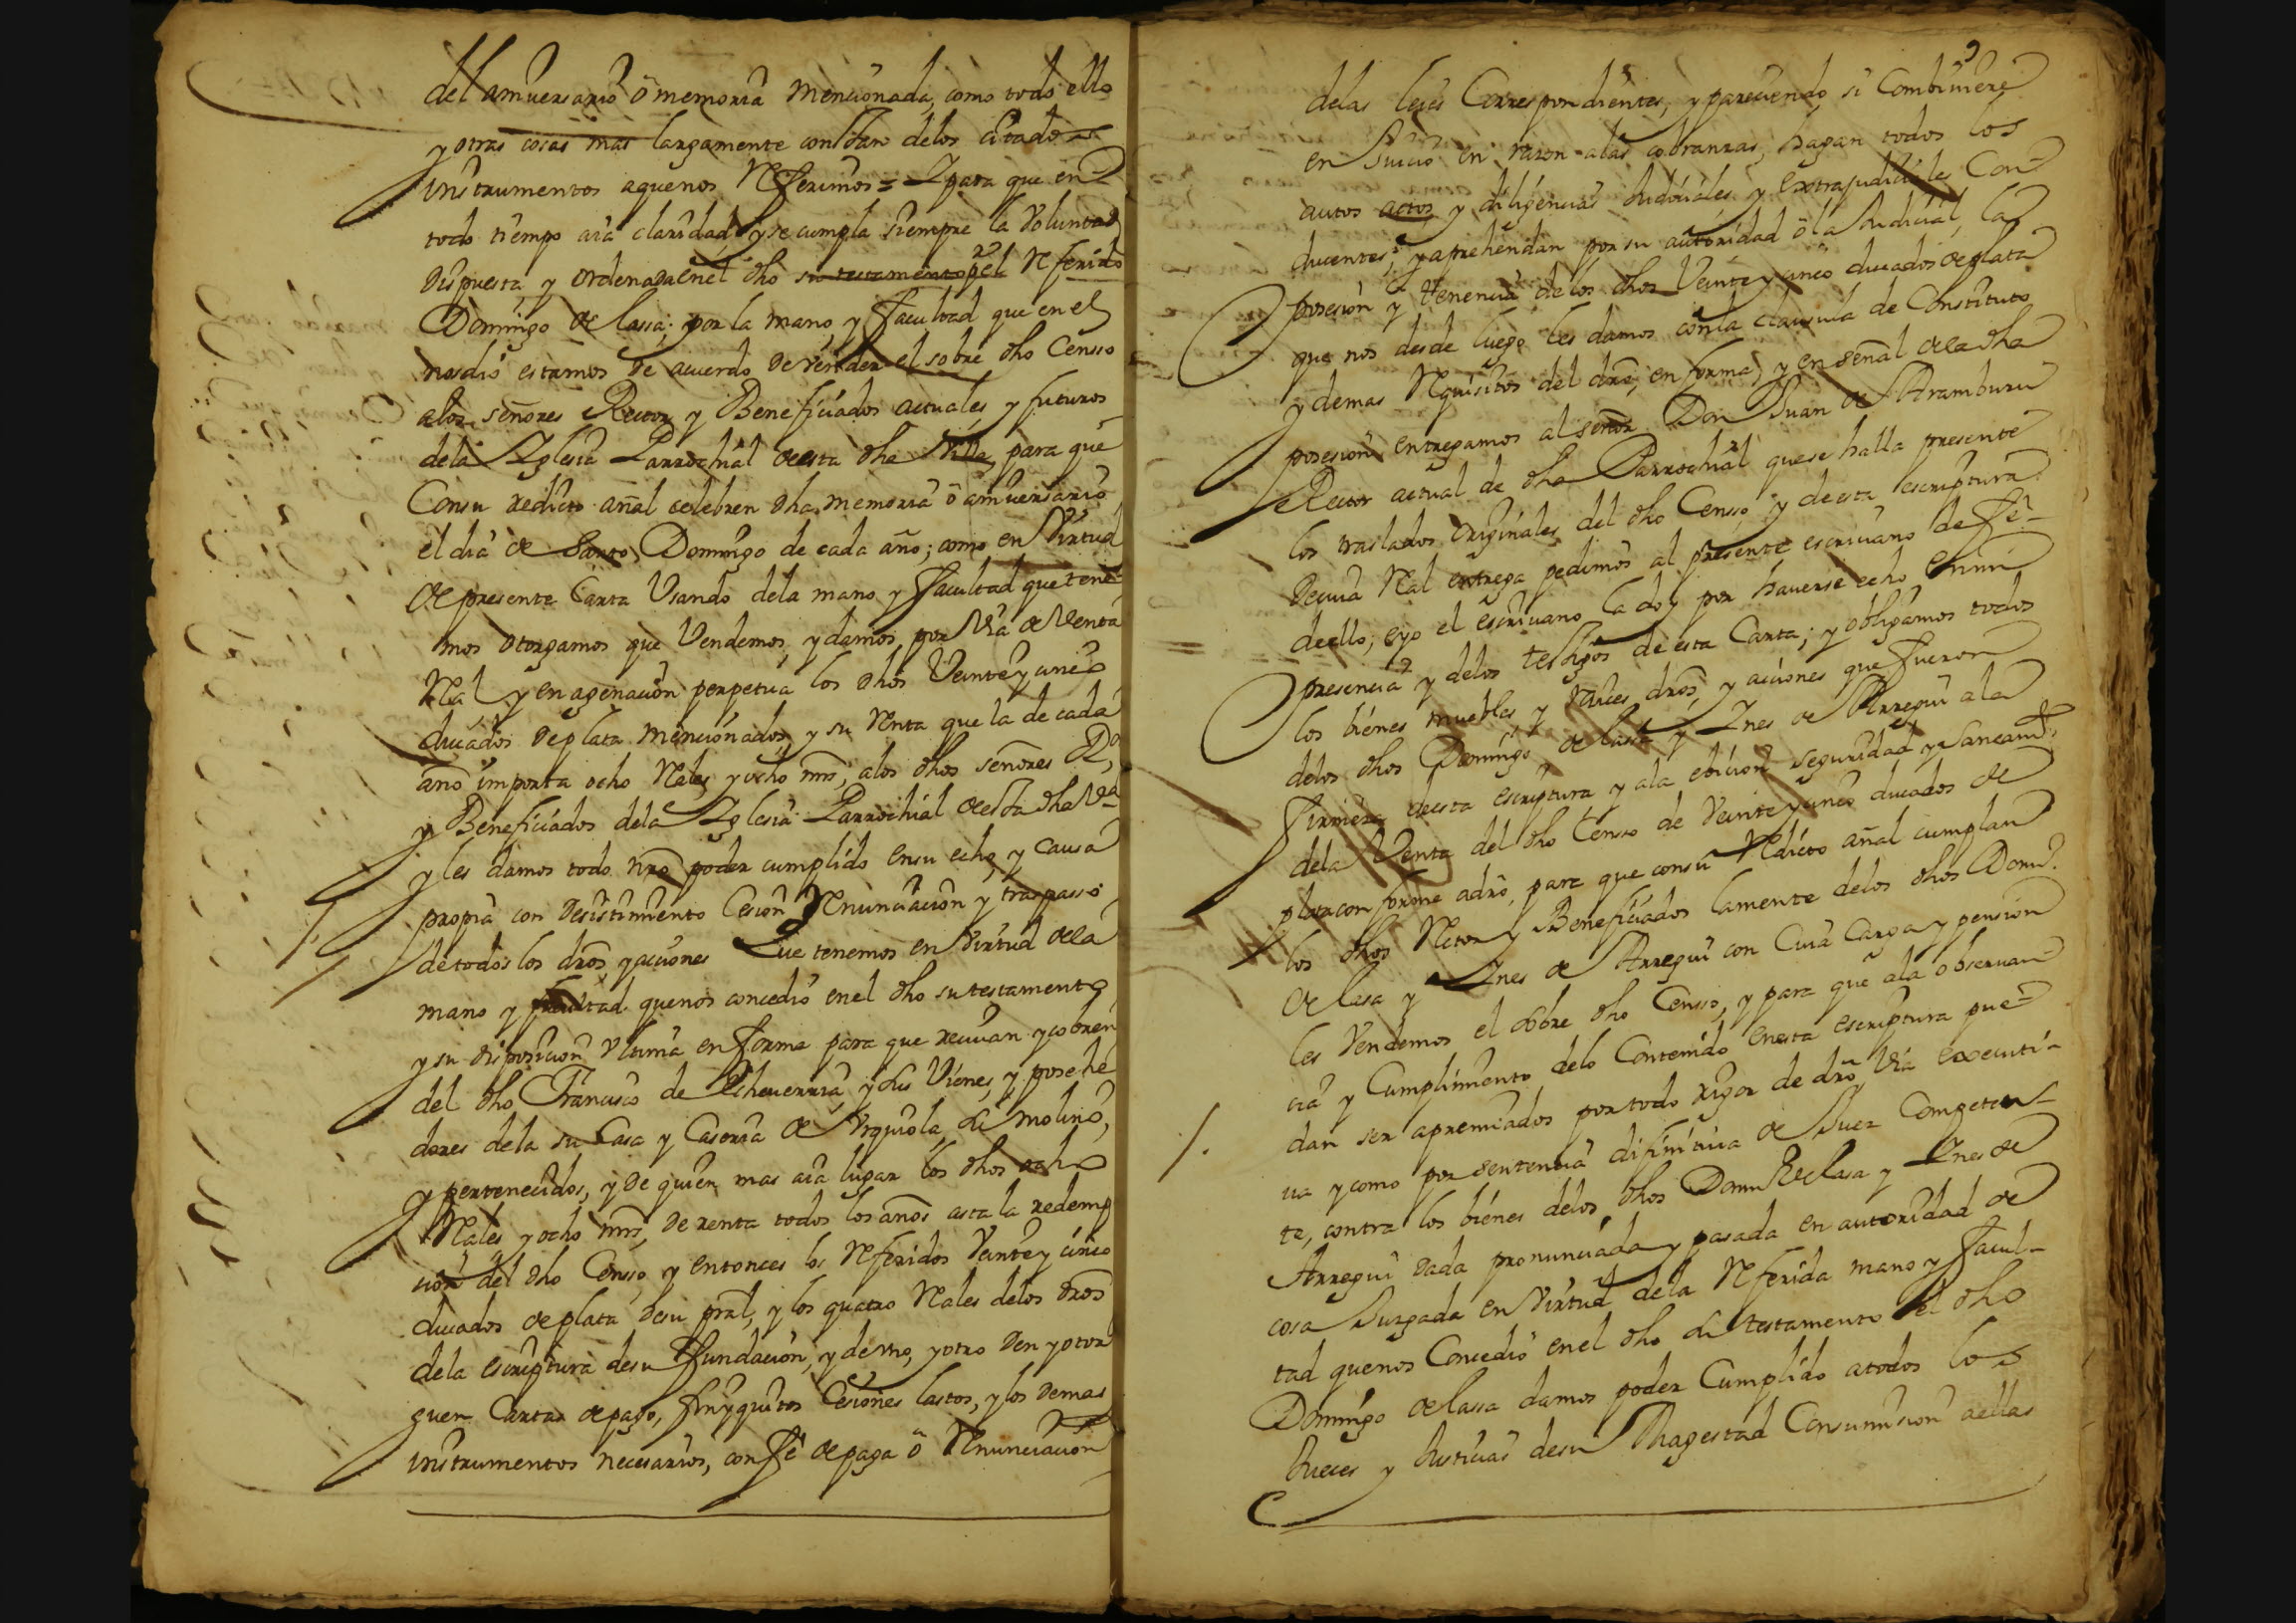 del aniversario ô memoria mencionada, como todo ello
y otras cosas mas largamente constan delos citados
instrumentos aquenos Referimos = Y para que en
todo tiempo aia claridad y se cumpla siempre la Voluntad
dispuesta y ordenada enel dho su testamento pr el Referido
Domingo de lassa; por la mano, y facultad que en el
nosdió estamos de acuerdo de vender el sobre dho Censso
alos señores Rector y Beneficiados actuales y futuros
dela Yglesia Parrochial de esta dha Villa, para que
Consu redicto añal celebren dha memoria ô aniversario
el dia de Santo Domingo de cada año; como en Virtud
de presente Carta Usando dela mano y facultad que tene-
mos otorgamos que Vendemos, y damos, por Via de Venta
Real y en agenacion perpetua los dhos Veinte y cinco
ducados de plata mencionados, y su Renta que la de cada
año importa ocho Reales y ocho mrs, alos dhos señores Rr,
y Beneficiados dela Yglesia Parrochial de esta dha Va
y les damos todo nro poder cumplido ensu echo, y causa
propia con desistimiento Cesion Renunciacion y traspasso
de todos los dros, y acciones Que tenemos en Virtud dela
mano y facultad quenos concedió enel dho su testamento
y su disposicion Ultima en forma para que reciuan y cobren
del dho Francisco de Echeuerria, y sus Vienes, y posehe
dores dela su Casa y Caseria de Urquiola, su molino,
y pertenecidos, y de quien mas aia lugar los dhos ocho
Reales y ocho mrs, de renta todos los años asta la redemp
cion del dho Censso, y entonces los Referidos Veinte y cinco
ducados de plata desu pral, y los quatro Reales delos dros
dela escriptura desu fundacion, y de vno, y otro den y otor
guen Cartas de pago, finyquitos Cesiones lastos, y los demas
instrumentos necesarios, con fé de paga ô Renunciacion
9
delas leies Correspondientes, y pareciendo si Combiniere
en Juicio en razon alas cobranzas, hagan todos los
autos actos y diligencias Judiciales y extrajudiciales Con
ducentes, y aprehendan por su autoridad ô la Judicial, la
posesion y tenencia de los dhos Veinte y cinco ducados de plata
que nos desde luego les damos conla clausula de Constituto
y demas Requisitos del dro, en forma, y en señal dela dha
posesion entregamos al señor Don Juan de Aramburu
Rector actual de dha Parrochial quese halla presente
los traslados originales del dho Censso, y de esta escriptura
de cuia Real entrega pedimos al presente escriuano de fé
de ello; eyo el escriuano la doy por hauerse echo, en mi
presencia y delos testigos de esta Carta; y obligamos todos
los bienes muebles, y raices, dros, y acciones que fueron
delos dhos Domingo de lassa y Ynes de Arregui ala
firmeza deesta escriptura y ala eviccion seguridad y saneamto
dela Venta del dho Censo de Veinte y cinco ducados de
plata con forme adro, para que consu Redicto añal cumplan
los dhos Retor y Beneficiados lamente delos dhos Domo
de lasa y Ynes de Arregui con Cuia Carga y pension
les Vendemos el sobre dho Censso, y para que ala obseruan
cia y Cumplimiento delo Contenido enesta escriptura pue
dan ser apremiados por todo rigor de dro, Via executi-
ua y como por sentencia difinitiua de Juez Competen-
te, contra los bienes delos dhos Domo de lasa y Ynes de
Arregui dada pronunciada y pasada en autoridad de
cosa Juzgada en Virtud dela Referida mano y facul-
tad quenos Concedió enel dho su testamento el dho
Domingo de lassa damos poder Cumplido atodos los
Jueces y Justicias desu Magestad Consumision aellas